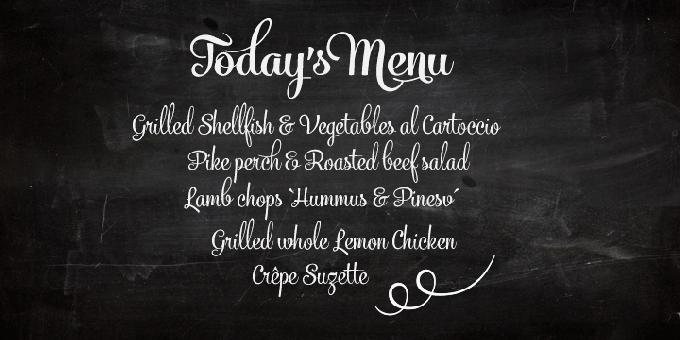 Today's Menu
Grilled Shellfish & Vegetables al Cartoccio
Pike perch & Roasted beef salad
Lamb chops 'Hummus & Pineso'
Grilled whole Lemon Chicken
Crêpe Suzette